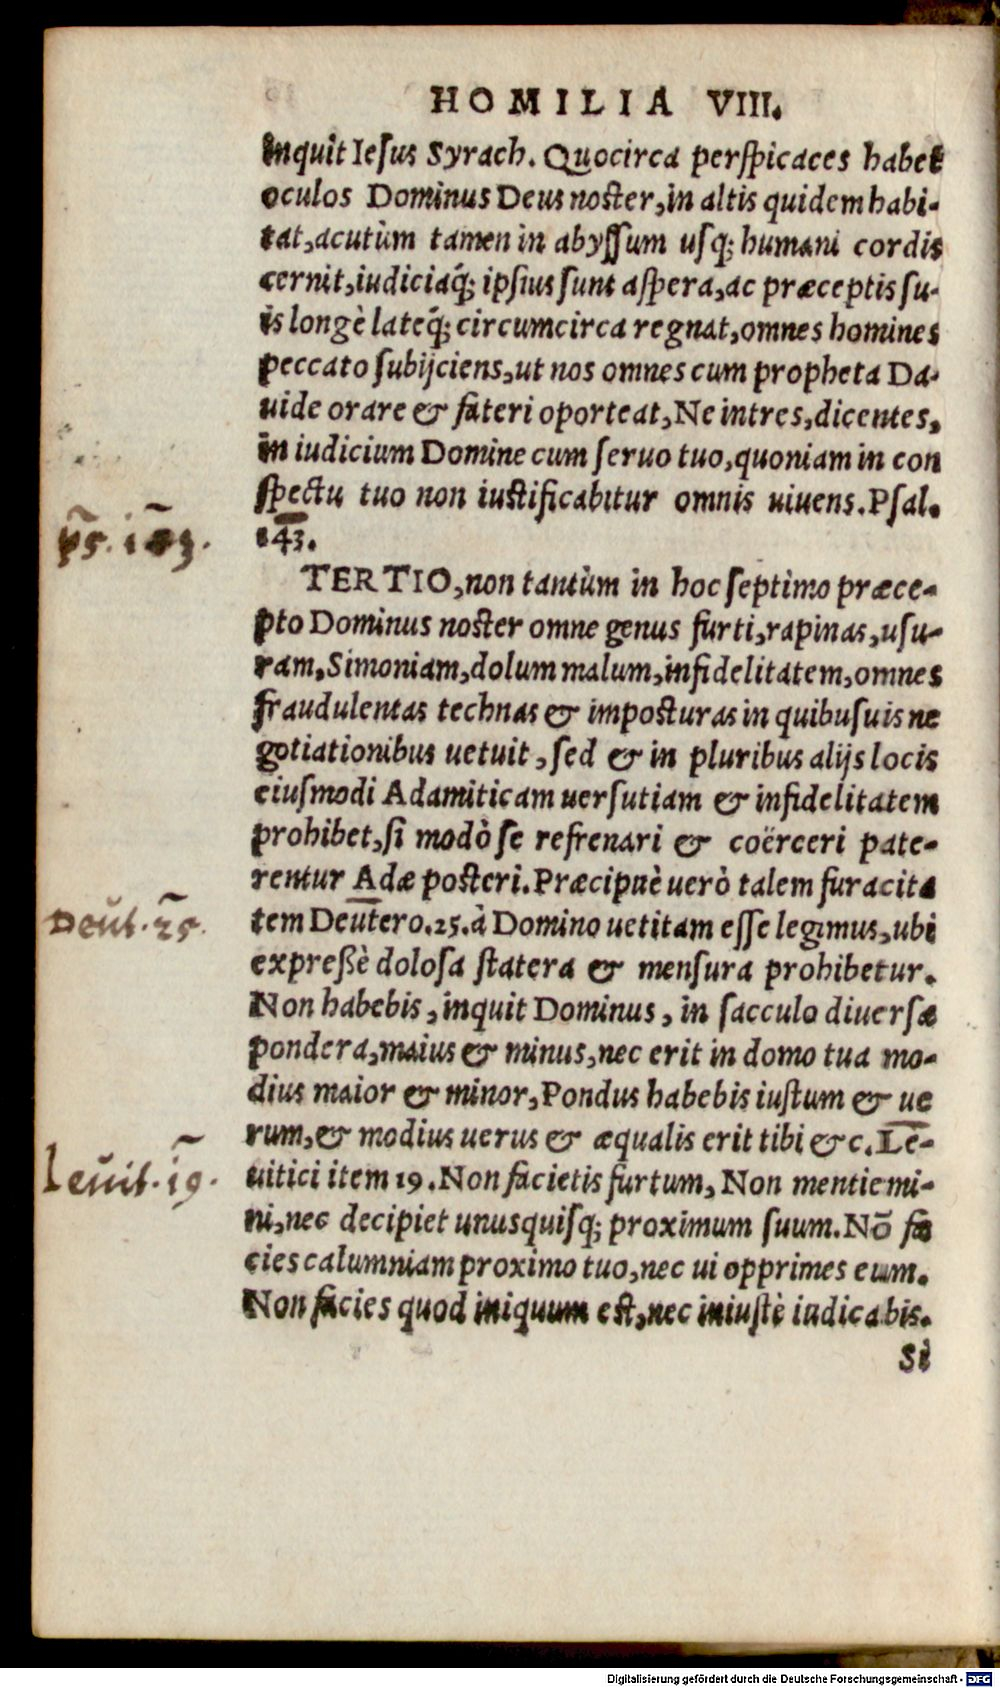 HOMILIA VIII.
inquit Iesus Syrach. Quocirca perspicaces habet
oculos Dominus Deus noster, in altis quidem habi-
tat, acutùm tamen in abyssum usq; humani cordis
cernit, iudiciaq́; ipsius sunt aspera, ac præceptis su-
is longè lateq́; circumcirca regnat, omnes homines
peccato subijciens, ut nos omnes cum propheta Da-
uide orare & fateri oporteat, Ne intres, dicentes,
in iudicium Domine cum seruo tuo, quoniam in con
spectu tuo non iustificabitur omnis uiuens. Psal.
143.
ps. 143.
TERTIO, non tantùm in hoc septimo præce-
pto Dominus noster omne genus furti, rapinas, usu-
ram, Simoniam, dolum malum, infidelitatem, omnes
fraudulentas technas & imposturas in quibusuis ne
gotiationibus uetuit, sed & in pluribus alijs locis
eiusmodi Adamiticam uersutiam & infidelitatem
prohibet, si modò se refrenari & coërceri pate-
rentur Adæ posteri. Præcipuè uerò talem furacita
tem Deutero. 25. à Domino uetitam esse legimus, ubi
Deut. 25.
expreßè dolosa statera & mensura prohibetur.
Non habebis, inquit Dominus, in sacculo diuersa
pondera, maius & minus, nec erit in domo tua mo-
dius maior & minor, Pondus habebis iustum & ue
rum, & modius uerus & æqualis erit tibi &c. Le-
uitici item 19. Non facietis furtum, Non mentiemi-
Leuit. 19.
ni, nec decipiet unusquisq; proximum suum. Nō fa
cies calumniam proximo tuo, nec ui opprimes eum.
Non facies quod iniquum est, nec iniustè iudicabis.
Si
Digitalisierung gefördert durch die Deutsche Forschungsgemeinschaft - DFG